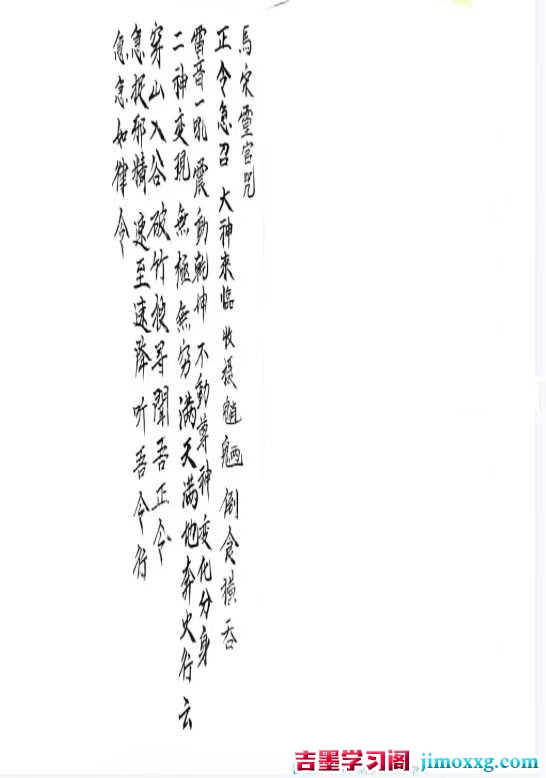 馬宋靈官咒
正令急召 大神来臨 收摄魈魉 倒食横吞
雷音一吼 震動乾坤 不動尊神 变化分身
二神变現 無極無穷 满天满地 奔火行云
穿山入谷 破竹搜寻 聞吾正令
急捉邪精 速至速降 听吾令行
急急如律令
吉墨学习阁 jimoxxg.com